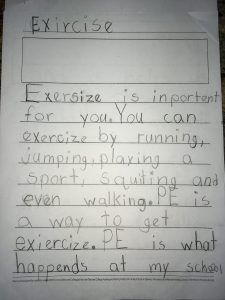 Exircise
Exersize is inportent
for you. You can
exercize by running,
jumping, playing a
sport, squiting and
even walking. PE is
a way to get
exiercize. PE is what
happends at my school